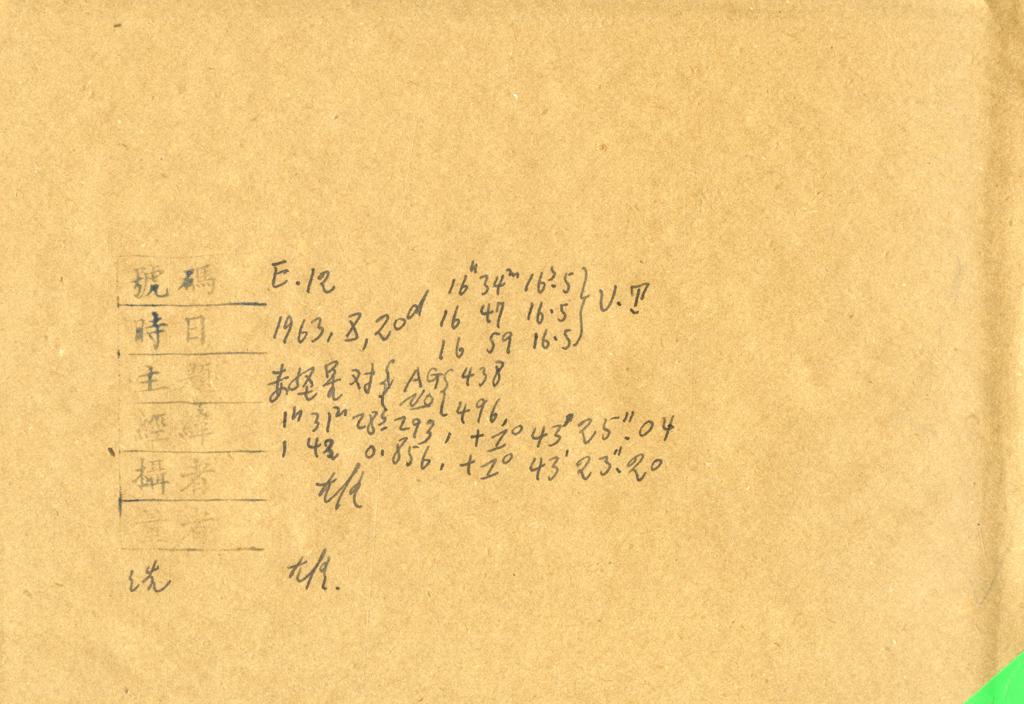 號碼 E.12
時日 1963, 8, 20ᵈ
16ʰ 34ᵐ 16ˢ.5
16 47 16.5
16 59 16.5
U.T.
主題 赤経星対 AG 438
No 496,
經緯 1ʰ 31ᵐ 28ˢ.293, +1° 43' 25".04
1 42 0.856, +1° 43' 23".20
攝者 雄
洗 雄.